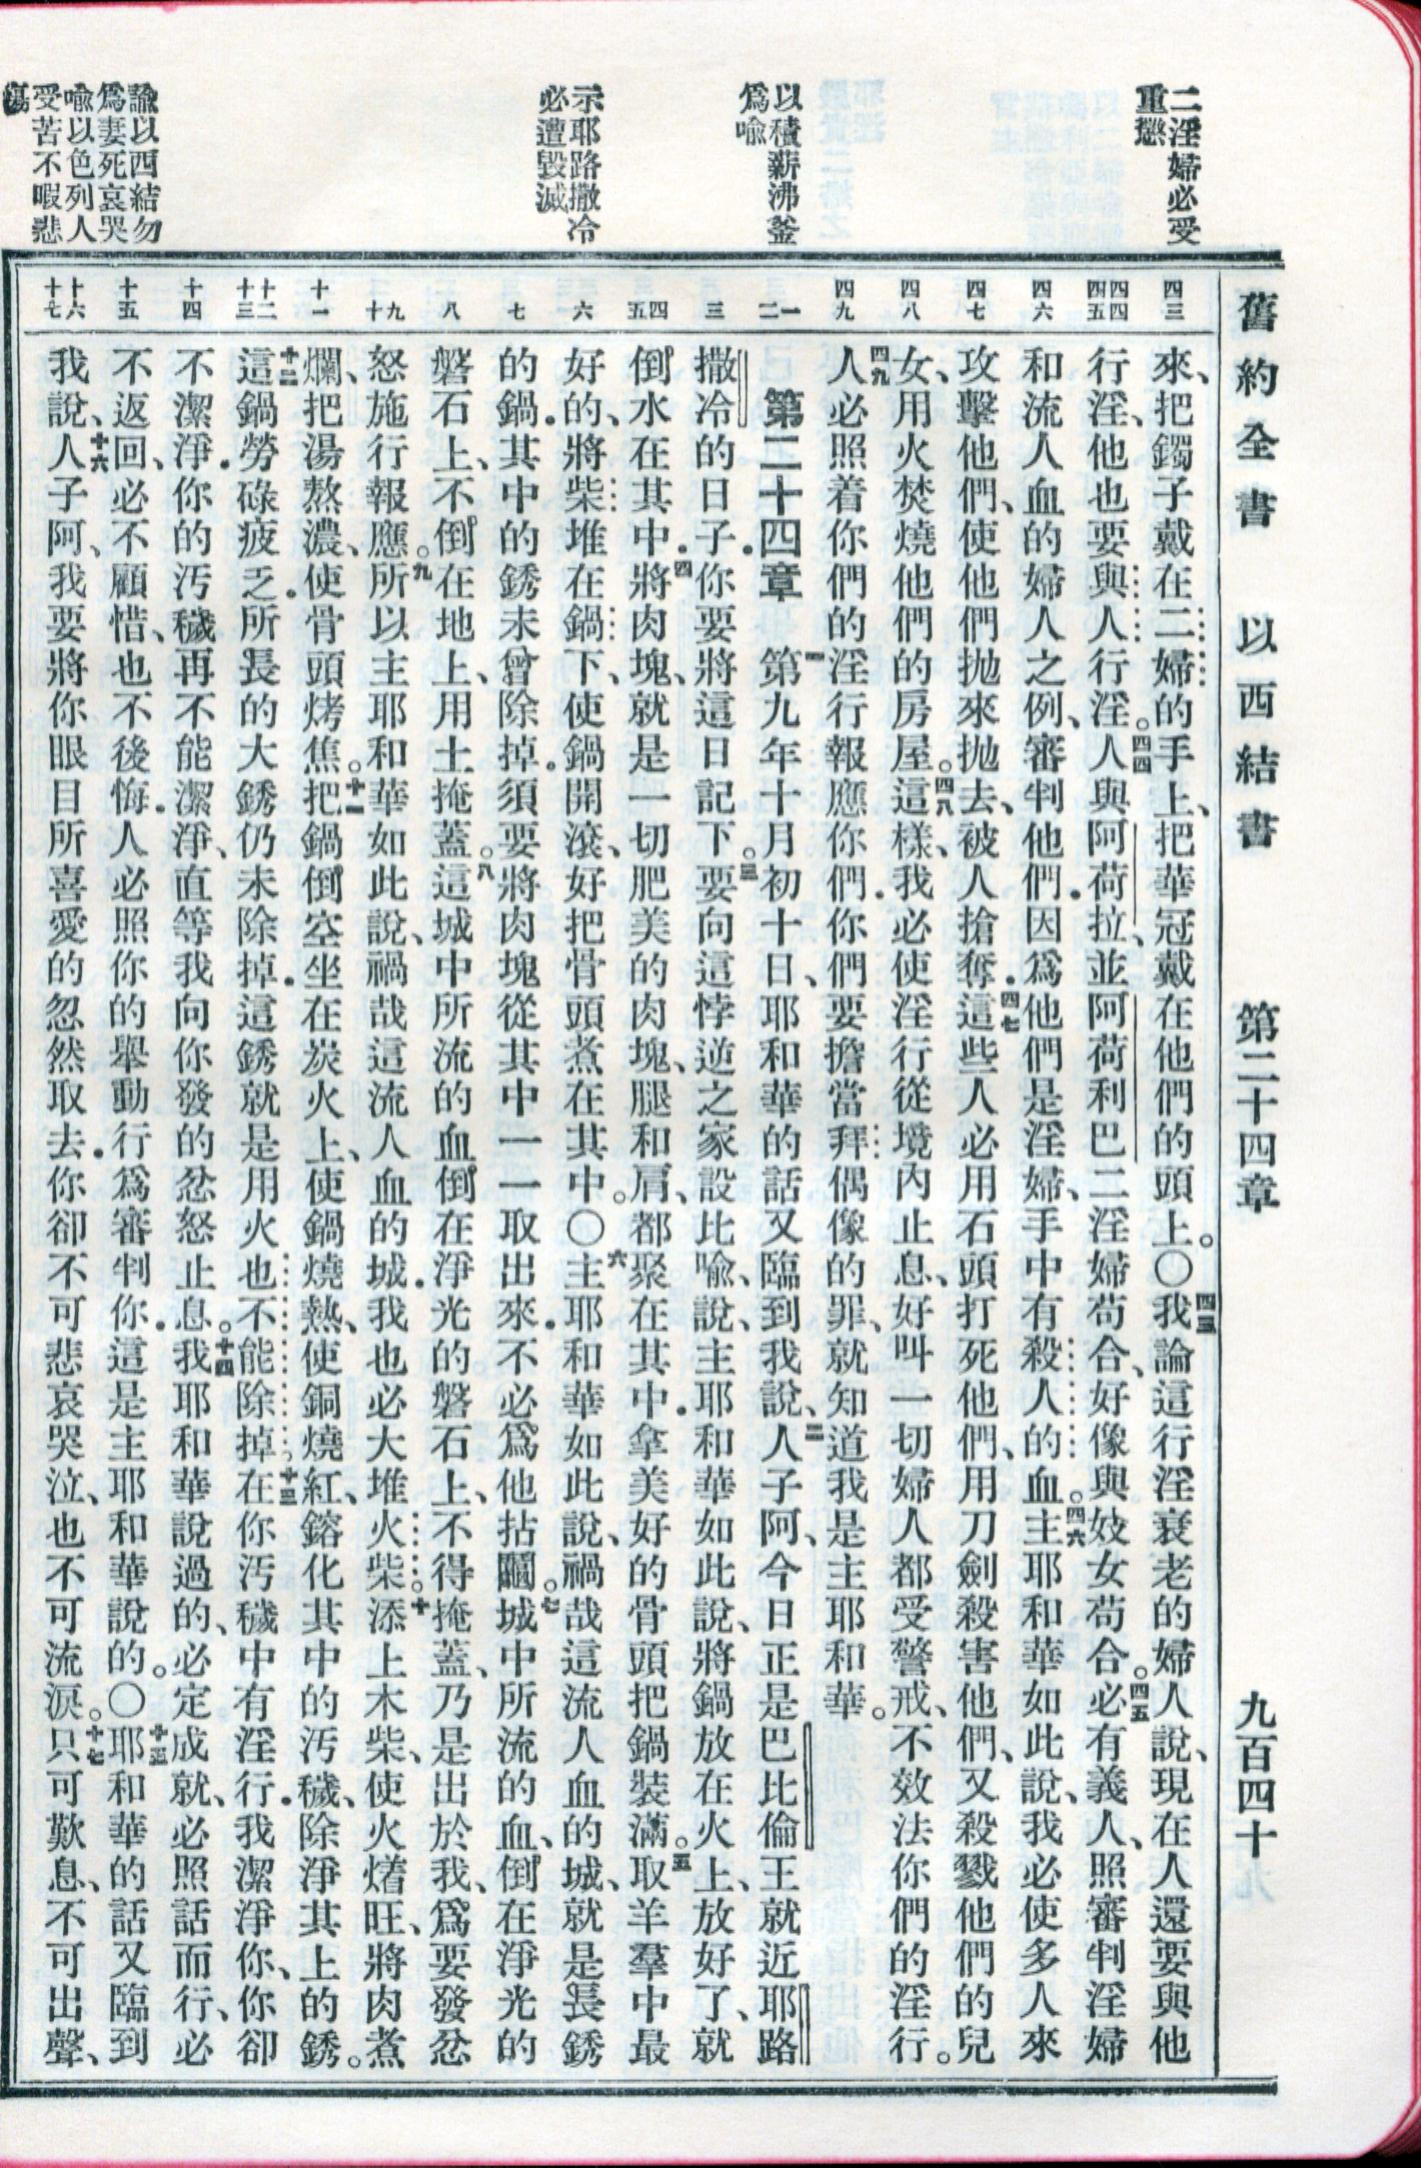 舊約全書　以西結書　第二十四章　九百四十
二淫婦必受
重懲
以積薪沸釜
爲喻
示耶路撒冷
必遭毀滅
諭以西結勿
爲妻死哀哭
喻以色列人
受苦不暇悲
傷
四三
四四
四五
四六
四七
四八
四九
一
二
三
四
五
六
七
八
九
十
十一
十二
十三
十四
十五
十六
十七
來、把鐲子戴在二婦的手上、把華冠戴在他們的頭上。〇四三我論這行淫衰老的婦人說、現在人還要與他
行淫、他也要與人行淫。四四人與阿荷拉、並阿荷利巴二淫婦苟合、好像與妓女苟合。四五必有義人、照審判淫婦
和流人血的婦人之例、審判他們．因爲他們是淫婦、手中有殺人的血。四六主耶和華如此說、我必使多人來
攻擊他們、使他們拋來拋去、被人搶奪．四七這些人必用石頭打死他們、用刀劍殺害他們、又殺戮他們的兒
女、用火焚燒他們的房屋。四八這樣、我必使淫行從境內止息、好叫一切婦人都受警戒、不效法你們的淫行。
四九人必照着你們的淫行報應你們．你們要擔當拜偶像的罪、就知道我是主耶和華。
第二十四章　一第九年十月初十日、耶和華的話又臨到我說、二人子阿、今日正是巴比倫王就近耶路
撒冷的日子．你要將這日記下。三要向這悖逆之家設比喻、說、主耶和華如此說、將鍋放在火上、放好了、就
倒水在其中．四將肉塊、就是一切肥美的肉塊、腿和肩、都聚在其中．拿美好的骨頭把鍋裝滿。五取羊羣中最
好的、將柴堆在鍋下、使鍋開滾、好把骨頭煮在其中。〇六主耶和華如此說、禍哉這流人血的城、就是長銹
的鍋．其中的銹未曾除掉．須要將肉塊從其中一一取出來．不必爲他拈鬮。七城中所流的血、倒在淨光的
磐石上、不倒在地上、用土掩蓋。八這城中所流的血倒在淨光的磐石上、不得掩蓋、乃是出於我、爲要發忿
怒施行報應。九所以主耶和華如此說、禍哉這流人血的城．我也必大堆火柴。十添上木柴、使火㸃旺、將肉煮
爛、把湯熬濃、使骨頭烤焦。十一把鍋倒空坐在炭火上、使鍋燒熱、使銅燒紅、鎔化其中的汚穢、除淨其上的銹。
十二這鍋勞碌疲乏．所長的大銹仍未除掉．這銹就是用火也不能除掉。十三在你汚穢中有淫行．我潔淨你、你卻
不潔淨．你的汚穢再不能潔淨、直等我向你發的忿怒止息。十四我耶和華說過的、必定成就、必照話而行、必
不返回、必不顧惜、也不後悔．人必照你的舉動行爲審判你．這是主耶和華說的。〇十五耶和華的話又臨到
我說、十六人子阿、我要將你眼目所喜愛的忽然取去．你卻不可悲哀哭泣、也不可流淚。十七只可歎息、不可出聲、